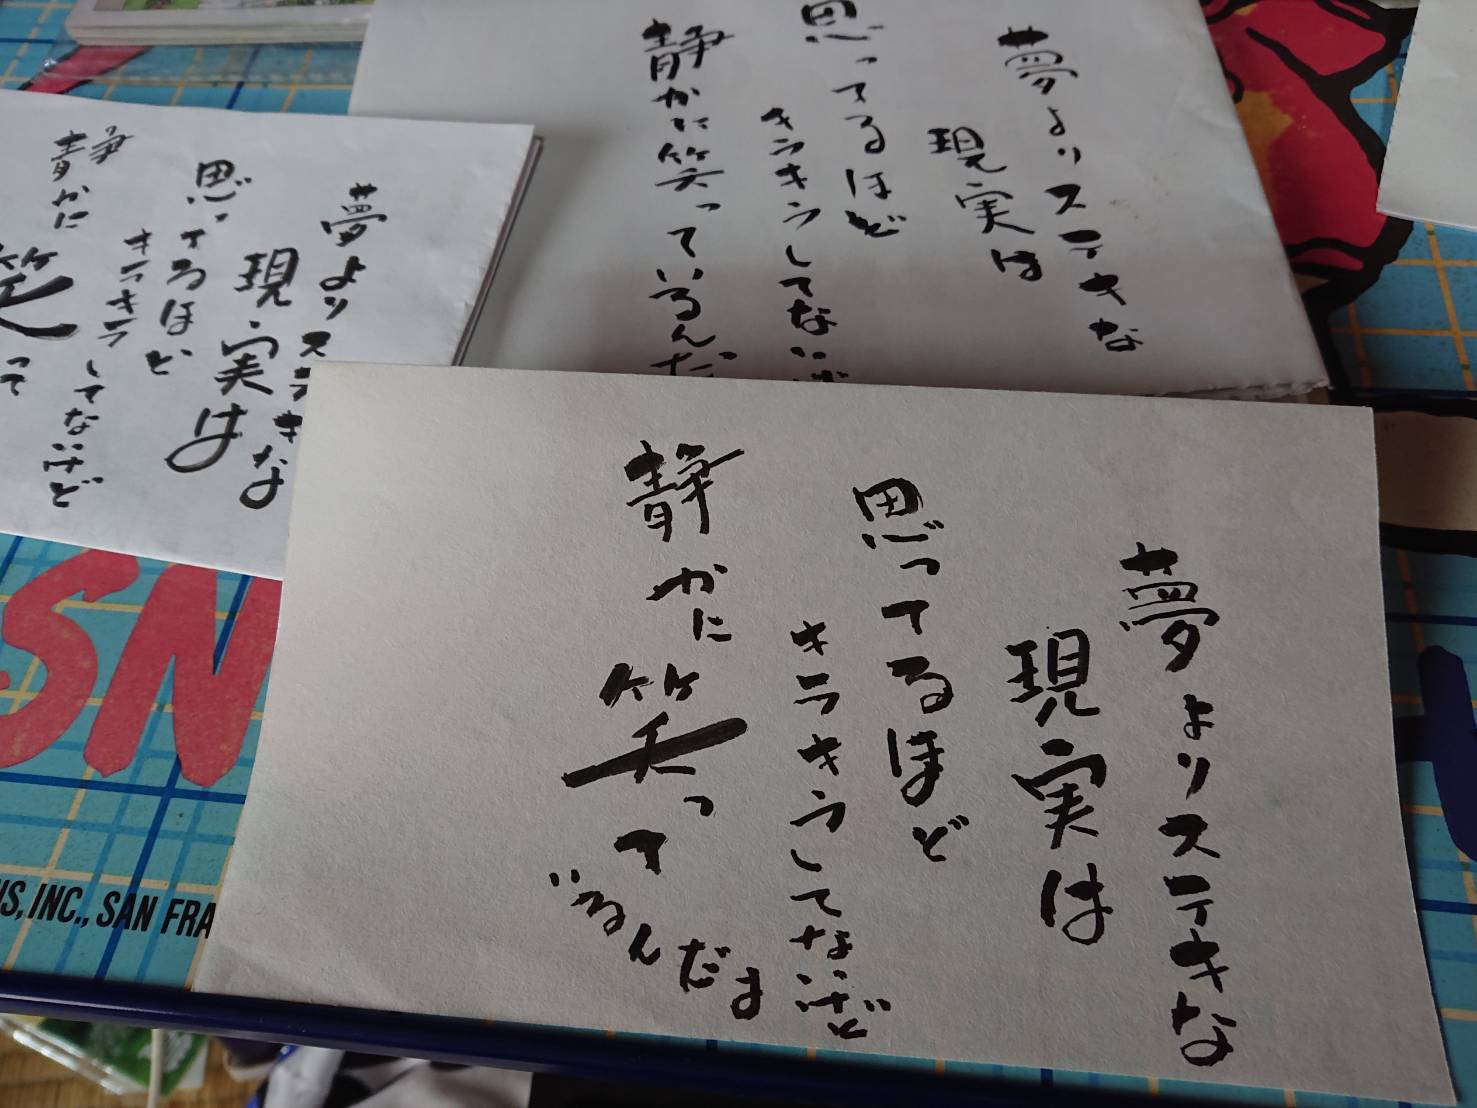 夢よりステキな
現実は
思ってるほど
キラキラしてないけど
静かに笑っているんだよ
夢よりステキな
現実は
思ってるほど
キラキラしてないけど
静かに笑っているんだ
夢よりステキな
現実は
思ってるほど
キラキラしてないけど
静かに笑って
SN
INC., SAN FRA